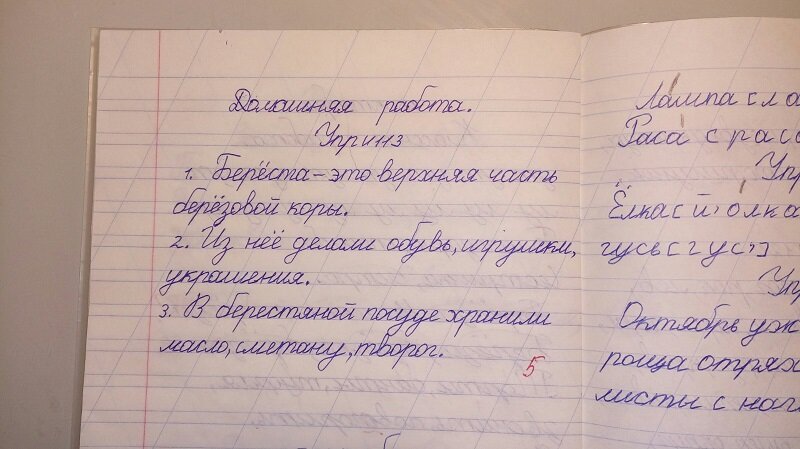 Домашняя работа.
Упринз
1. Берёста – это верхняя часть
берёзовой коры.
2. Из неё делали обувь, игрушки,
украшения.
3. В берестяной посуде хранили
масло, сметану, творог.
5
Лампа [ла
Раса [раса
Упр
Ёлка [й'олка
гусь [гус']
Упр
Октябрь уж
роща отрях
листы с наг